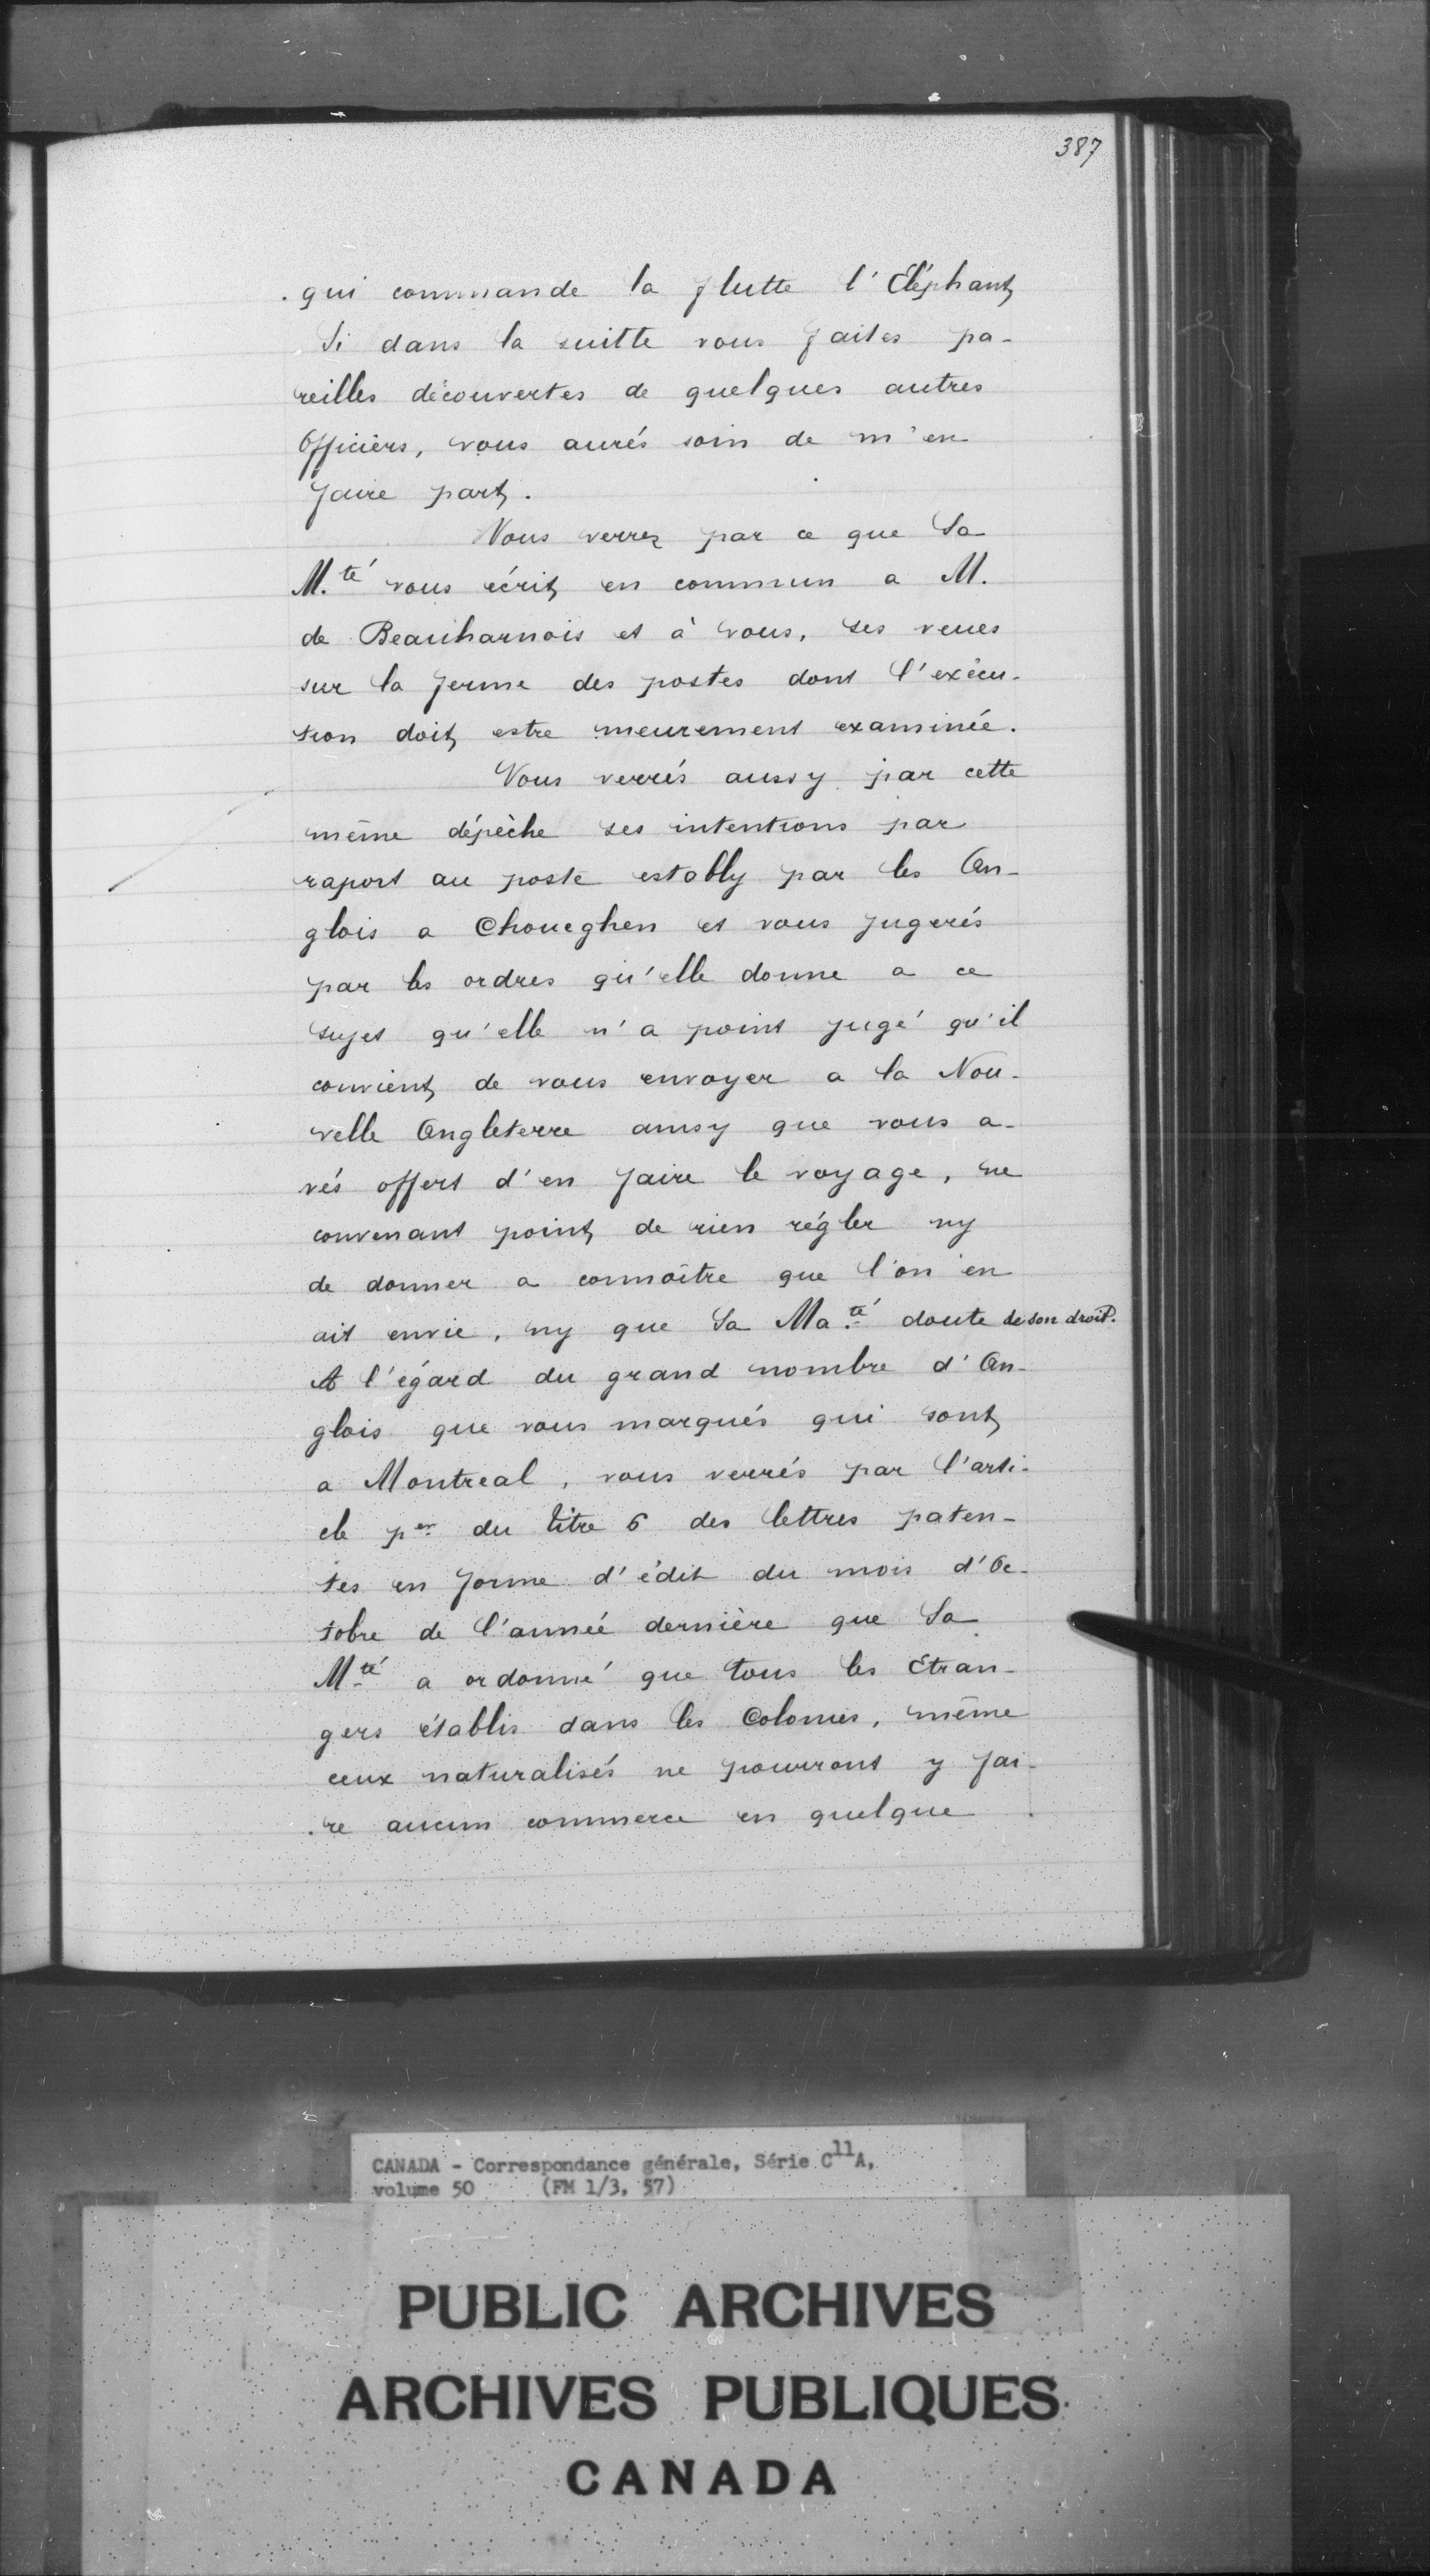 387
qui commande la flutte l'Eléphant
Si dans la suitte vous faites pa-
reilles découvertes de quelques autres
Officiers, vous aurés soin de m'en
faire part.
Vous verrez par ce que Sa
M.té vous écrit en commun a M.
de Beauharnois et à vous, ses veues
sur la ferme des postes dont l'exécu-
tion doit estre meurement examinée.
Vous verrés aussy par cette
même dépêche ses intentions par
raport au poste estably par les An-
glois a Choueghen et vous jugerés
par les ordres qu'elle donne a ce
sujet qu'elle n'a point jugé qu'il
convient de vous envoyer a la Nou-
velle Angleterre ainsy que vous a-
vés offert d'en faire le voyage, ne
convenant point de rien régler ny
de donner a connoître que l'on en
ait envie, ny que Sa Ma.té doute de son droit.
A l'égard du grand nombre d'An-
glois que vous marqués qui sont
a Montreal, vous verrés par l'arti-
cle per du titre 6 des lettres paten-
tes en forme d'édit du mois d'Oc-
tobre de l'année dernière que Sa
M.té a ordonné que tous les Etran-
gers établis dans les Colonies, même
ceux naturalisés ne pourront y fai-
re aucun commerce en quelque
CANADA - Correspondance générale, Série C11A,
volume 50 (FM 1/3, 57)
PUBLIC ARCHIVES
ARCHIVES PUBLIQUES
CANADA